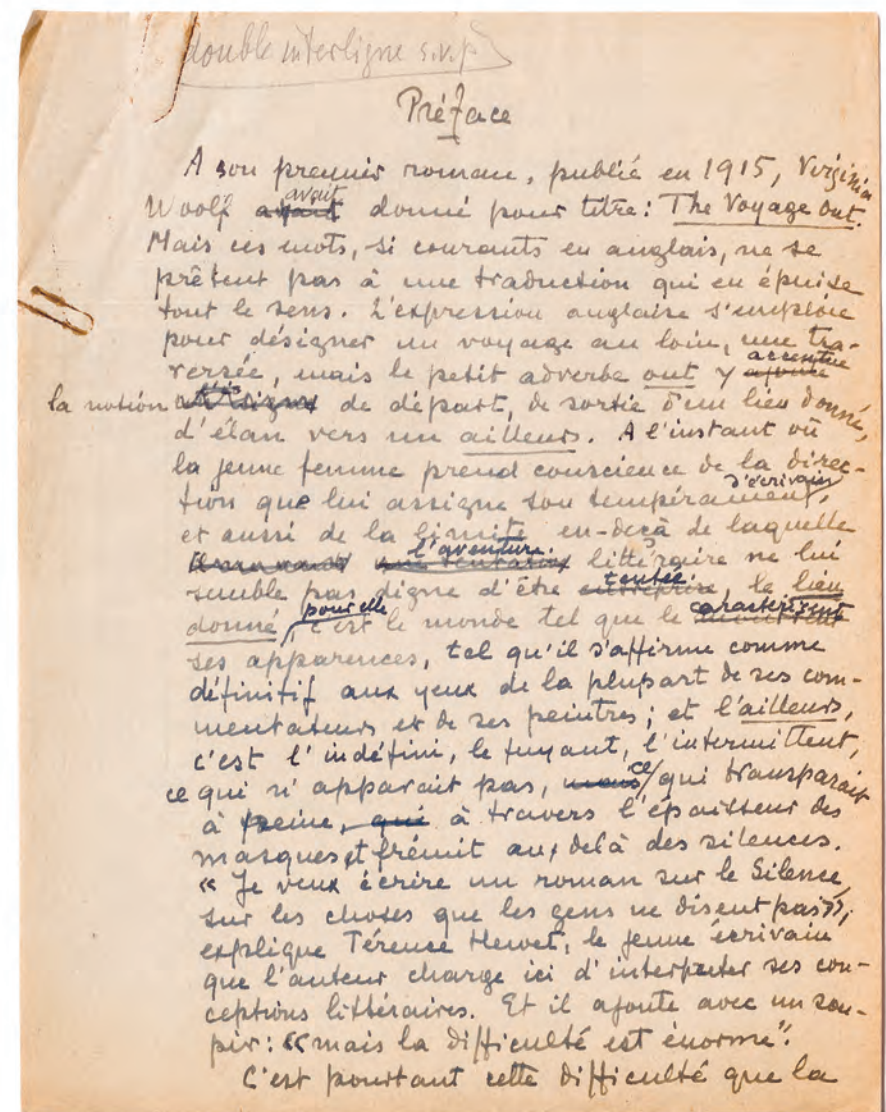 double interligne s.v.p.
Préface
A son premier roman, publié en 1915, Virginia
avait
Woolf ayant donné pour titre : The Voyage Out.
Mais ces mots, si courants en anglais, ne se
prêtent pas à une traduction qui en épuise
tout le sens. L'expression anglaise s'emploie
pour désigner un voyage au loin, une tra-
accentue
versée, mais le petit adverbe out y ajoute
la notion de départ, de sortie d'un lieu donné,
d'élan vers un ailleurs. A l'instant où
la jeune femme prend conscience de la direc-
d'écrivain
tion que lui assigne son tempérament,
et aussi de la limite en-deçà de laquelle
l'aventure
une tentative littéraire ne lui
tentée
semble pas digne d'être entreprise, le lieu
pour elle caractérisent
donné, c'est le monde tel que le montrent
ses apparences, tel qu'il s'affirme comme
définitif aux yeux de la plupart de ses com-
mentateurs et de ses peintres ; et l'ailleurs,
c'est l'indéfini, le fuyant, l'intermittent,
ce
ce qui n'apparait pas, mais qui transparait
à peine, qui à travers l'épaisseur des
masques et frémit au delà des silences.
« Je veux écrire un roman sur le Silence,
sur les choses que les gens ne disent pas »,
explique Térence Hewet, le jeune écrivain
que l'auteur charge ici d'interpréter ses con-
ceptions littéraires. Et il ajoute avec un sou-
pir : « mais la difficulté est énorme ».
C'est pourtant cette difficulté que la